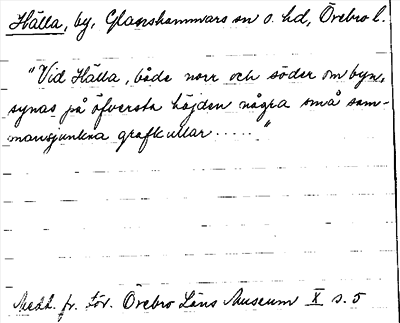 Hälla, by, Glanshammars sn o. hd, Örebro l.
"Vid Hälla, både norr och söder om byn,
synas på öfversta höjden några små sam-
mansjunkna grafkullar ....."
Medd. fr. För. Örebro Läns Museum X s. 5